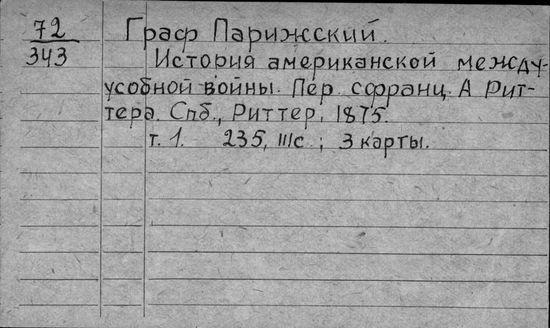 72 Граф Парижский.
343 История американской между-
усобной войны. Пер. с франц. А Рит-
тера. Спб., Риттер, 1875.
т. 1. 235, IIIс ; 3 карты.